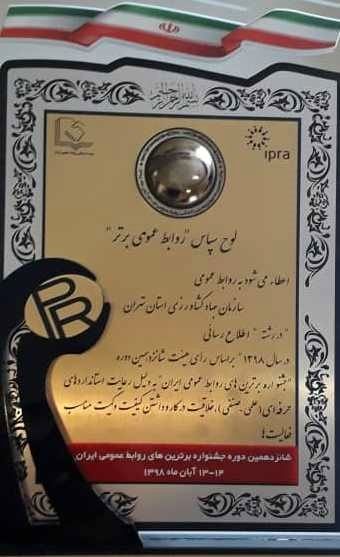 بسم الله الرحمن الرحیم
ipra
لوح سپاس "روابط عمومی برتر"
اعطاء می شود به روابط عمومی
سازمان جهاد کشاورزی استان تهران
"در رشته" اطلاع رسانی
در سال ۱۳۹۸" براساس رای هیئت شانزدهمین دوره
"جشنواره برترین های روابط عمومی ایران" به دلیل رعایت استانداردهای
حرفه ای (علمی-صنفی)، خلاقیت در کار و داشتن کیفیت و کمیت مناسب
فعالیت ها
PR
شانزدهمین دوره جشنواره برترین های روابط عمومی ایران
۱۳-۱۴ آبان ماه ۱۳۹۸